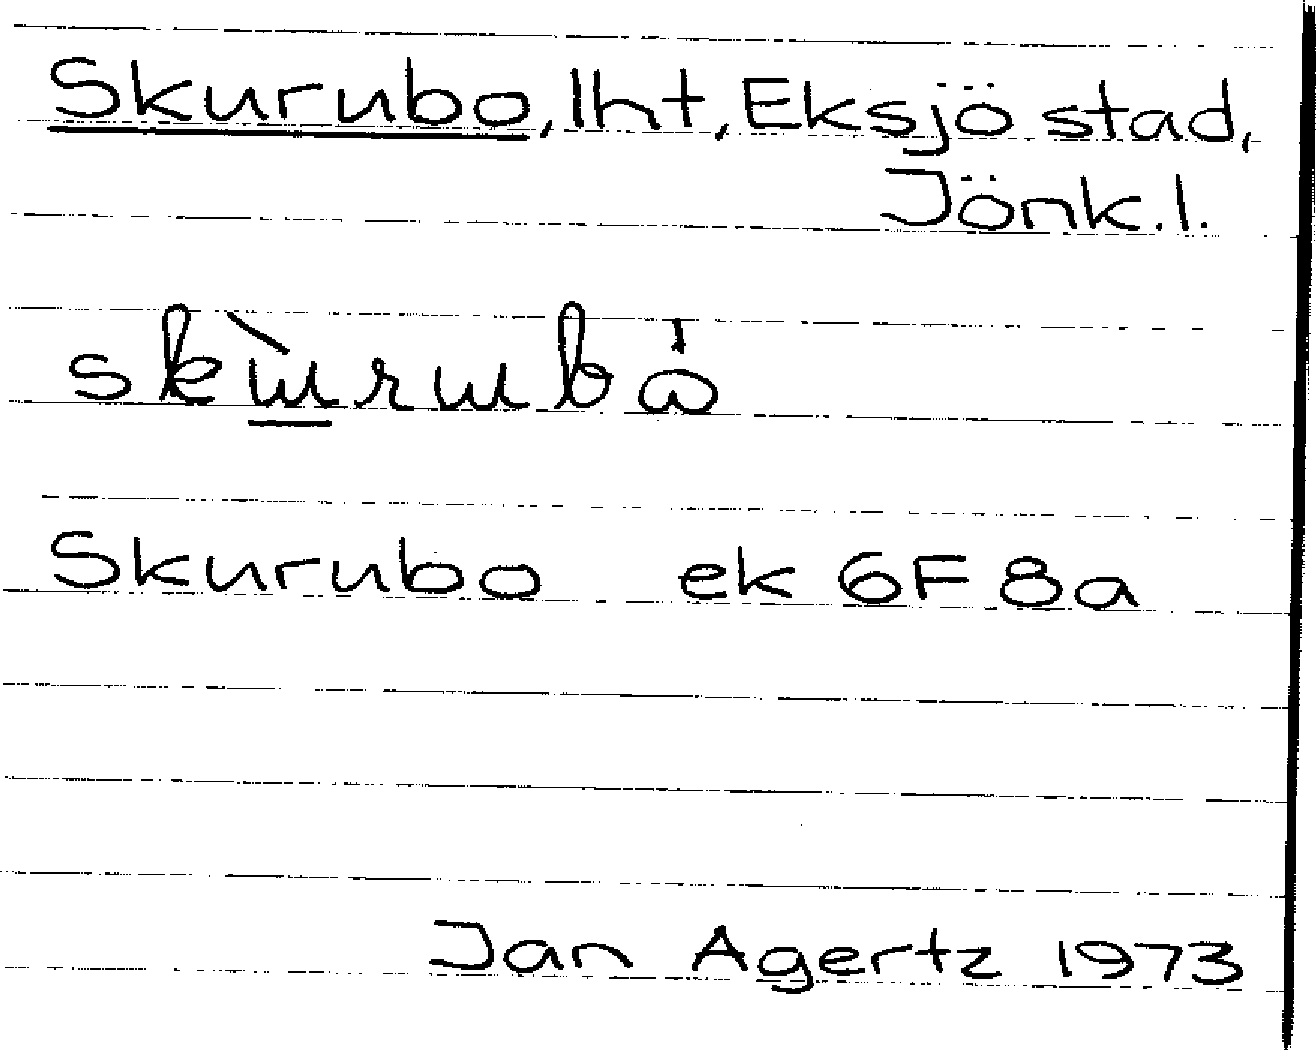 Skurubo, lht, Eksjö stad,
Jönk.l.
skɯ̠̀rɯbω̇
Skurubo ek 6F 8a
Jan Agertz 1973